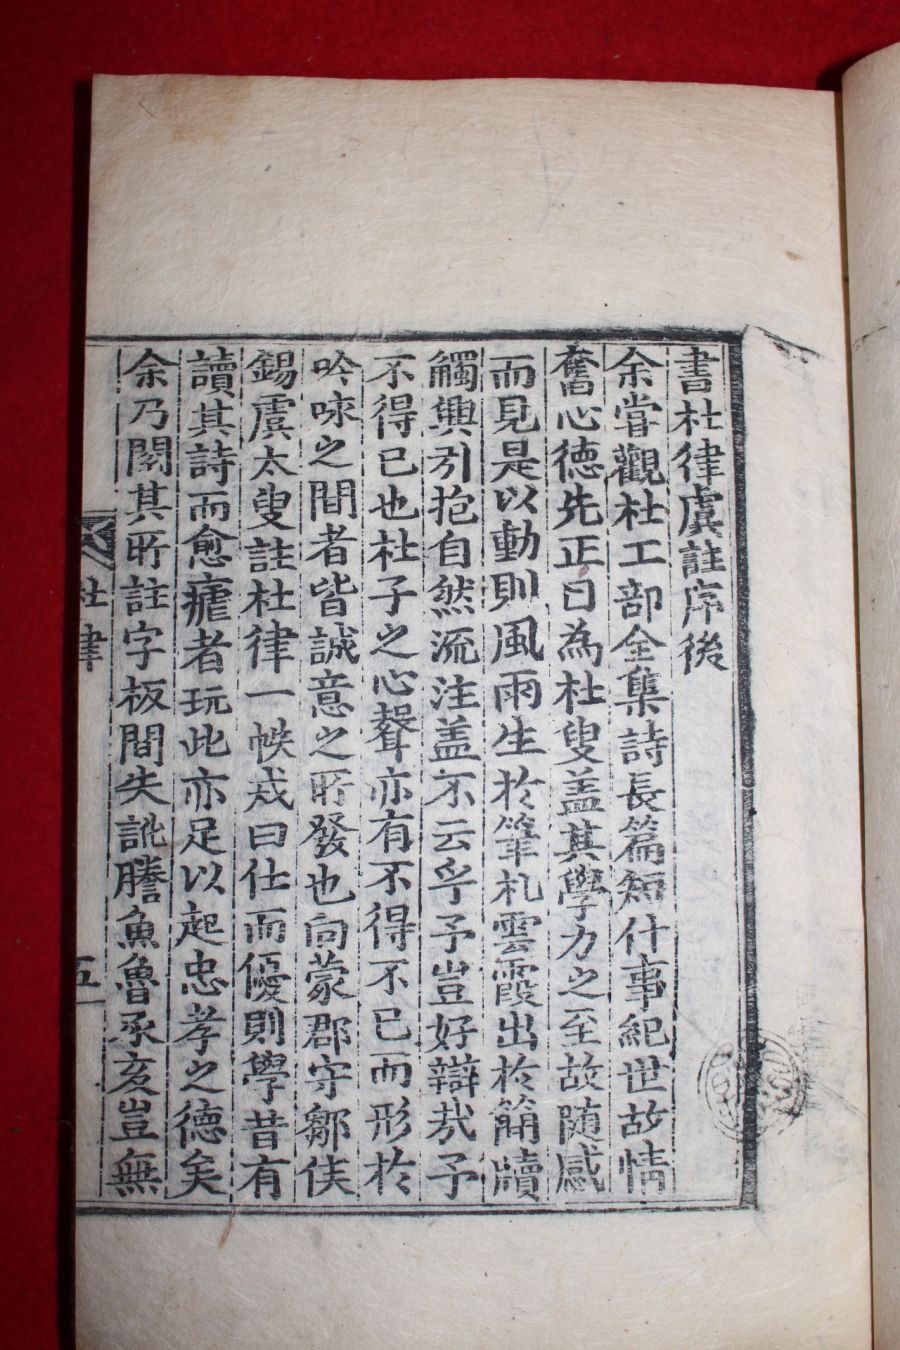 書杜律虞註序後
余甞觀杜工部全集詩長篇短什事紀世故情
奮心德先正曰為杜叟盖其學力之至故随感
而見是以動則風雨生於筆札雲霞出於簡牘
觸興引抱自然流注盖不云乎予豈好辯㢤予
不得已也杜子之心聲亦有不得不已而形於
吟咏之間者皆誠意之所發也向蒙郡守鄒侯
錫虞太叟註杜律一帙戎曰仕而優則學昔有
讀其詩而愈瘧者玩此亦足以起忠孝之德矣
余乃閱其所註字板間失訛謄魚魯承亥豈無
杜律
五